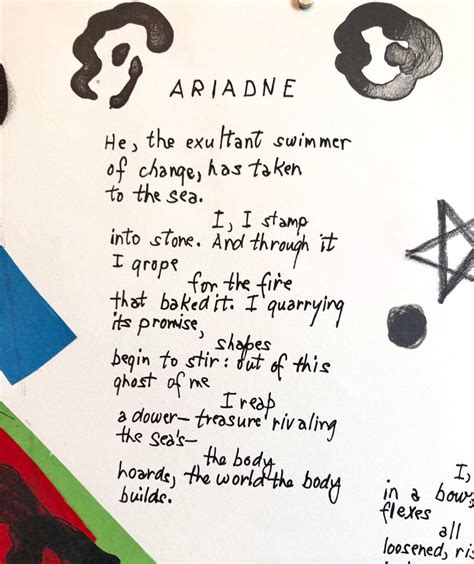 ARIADNE
He, the exultant swimmer
of change, has taken
to the sea.
I, I stamp
into stone. And through it
I grope
for the fire
that baked it. I quarrying
its promise,
shapes
begin to stir: out of this
ghost of me
I reap
a dower-treasure rivaling
the sea's—
the body
hoards, the world the body
builds.
I,
in a bow
flexes
all
loosened, ris